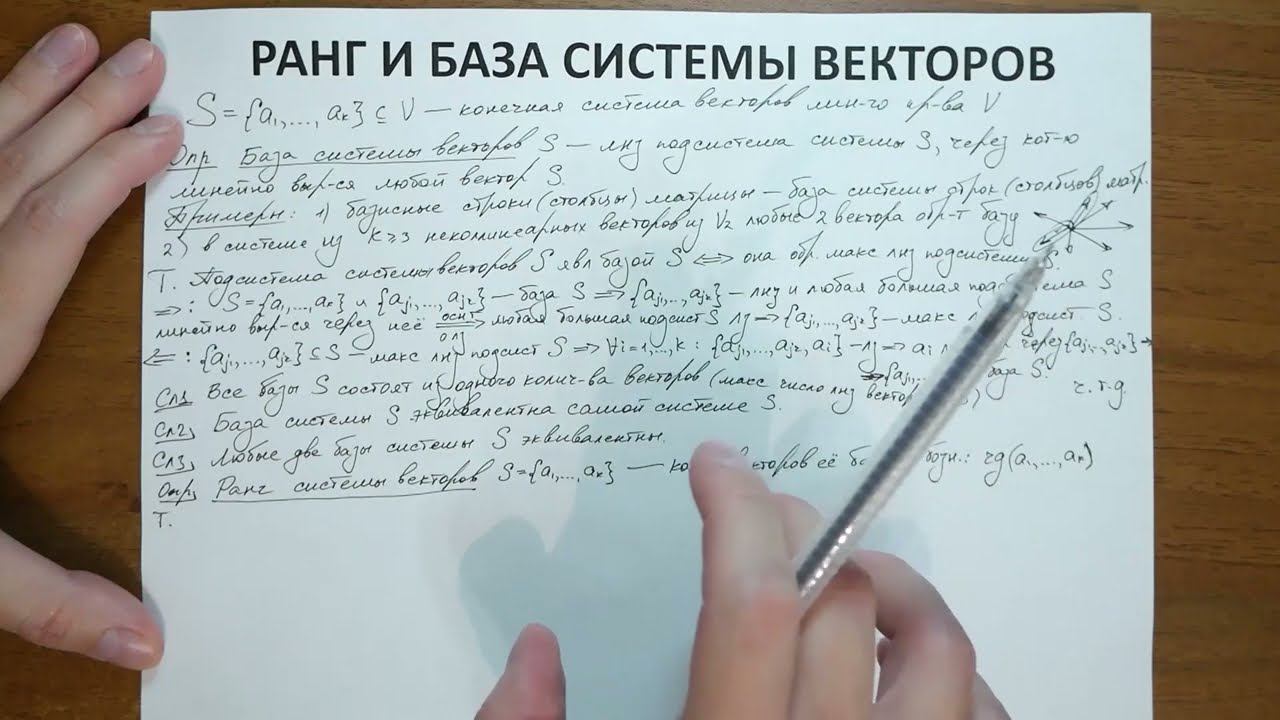 РАНГ И БАЗА СИСТЕМЫ ВЕКТОРОВ
S = {a₁,..., aₖ} ⊆ V — конечная система векторов лин-го пр-ва V
Опр База системы векторов S — лнз подсистема системы S, через кот-ю
линейно выр-ся любой вектор S.
Примеры: 1) базисные строки (столбцы) матрицы — база системы строк (столбцов) матр.
2) в системе из k ≥ 3 неколлинеарных векторов из V₂ любые 2 вектора обр-т базу
Т. Подсистема системы векторов S явл базой S ⟺ она обр. макс лнз подсистему S.
⇒: S = {a₁,..., aₖ} и {aⱼ₁,..., aⱼᵣ} — база S ⇒ {aⱼ₁,..., aⱼᵣ} — лнз и любая большая подсистема S
линейно выр-ся через неё ⇒ любая большая подсист S лз ⇒ {aⱼ₁,..., aⱼᵣ} — макс подсист S.
⇐: {aⱼ₁,..., aⱼᵣ} ⊆ S — макс лнз подсист S ⇒ ∀i = 1,..., k : {aⱼ₁,..., aⱼᵣ, aᵢ} — лз ⇒ aᵢ через {aⱼ₁,..., aⱼᵣ} ⇒
⇒ {aⱼ₁,... база S. ч.т.д.
Сл1, Все базы S состоят из одного колич-ва векторов (макс число лнз вектор S)
Сл2, База системы S эквивалентна самой системе S.
Сл3, Любые две базы системы S эквивалентны.
Опр, Ранг системы векторов S = {a₁,..., aₖ} — векторов её rg(a₁,..., aₖ)
Т.